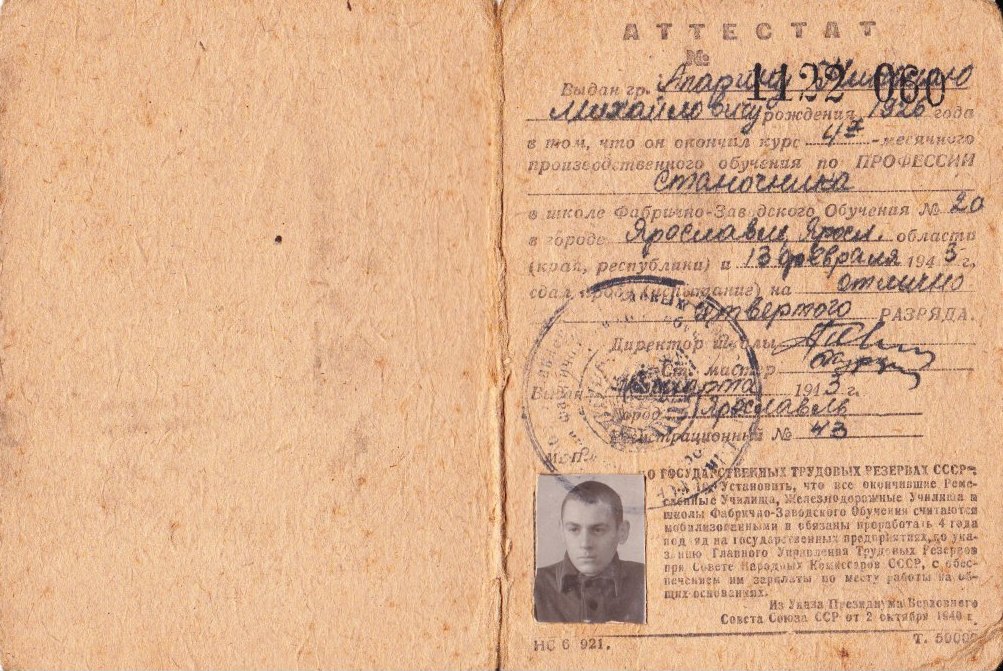 АТТЕСТАТ
№ 1122 060
Выдан гр. Апарину
Михайловичу рождения 1926 года
в том, что он окончил курс 4х -месячного
производственного обучения по ПРОФЕССИИ
Станочника
в школе Фабрично-Заводского Обучения № 20
в городе Ярославле, Яросл. области
(край, республики) и 13 февраля 1943 г.
сдал пробу (испытание) на отлично
четвертого РАЗРЯДА.
Директор школы
Ст. мастер
Выдан марта 1943 г.
Город Ярославль
Регистрационный № 43
О ГОСУДАРСТВЕННЫХ ТРУДОВЫХ РЕЗЕРВАХ СССР
10. Установить, что все окончившие Реме-
сленные Училища, Железнодорожные Училища и
школы Фабрично-Заводского Обучения считаются
мобилизованными и обязаны проработать 4 года
подряд на государственных предприятиях, по ука-
занию Главного Управления Трудовых Резервов
при Совете Народных Комиссаров СССР, с обес-
печением им зарплаты по месту работы на об-
щих основаниях.
Из Указа Президиума Верховного
Совета Союза ССР от 2 октября 1940 г.
НС 6 921.